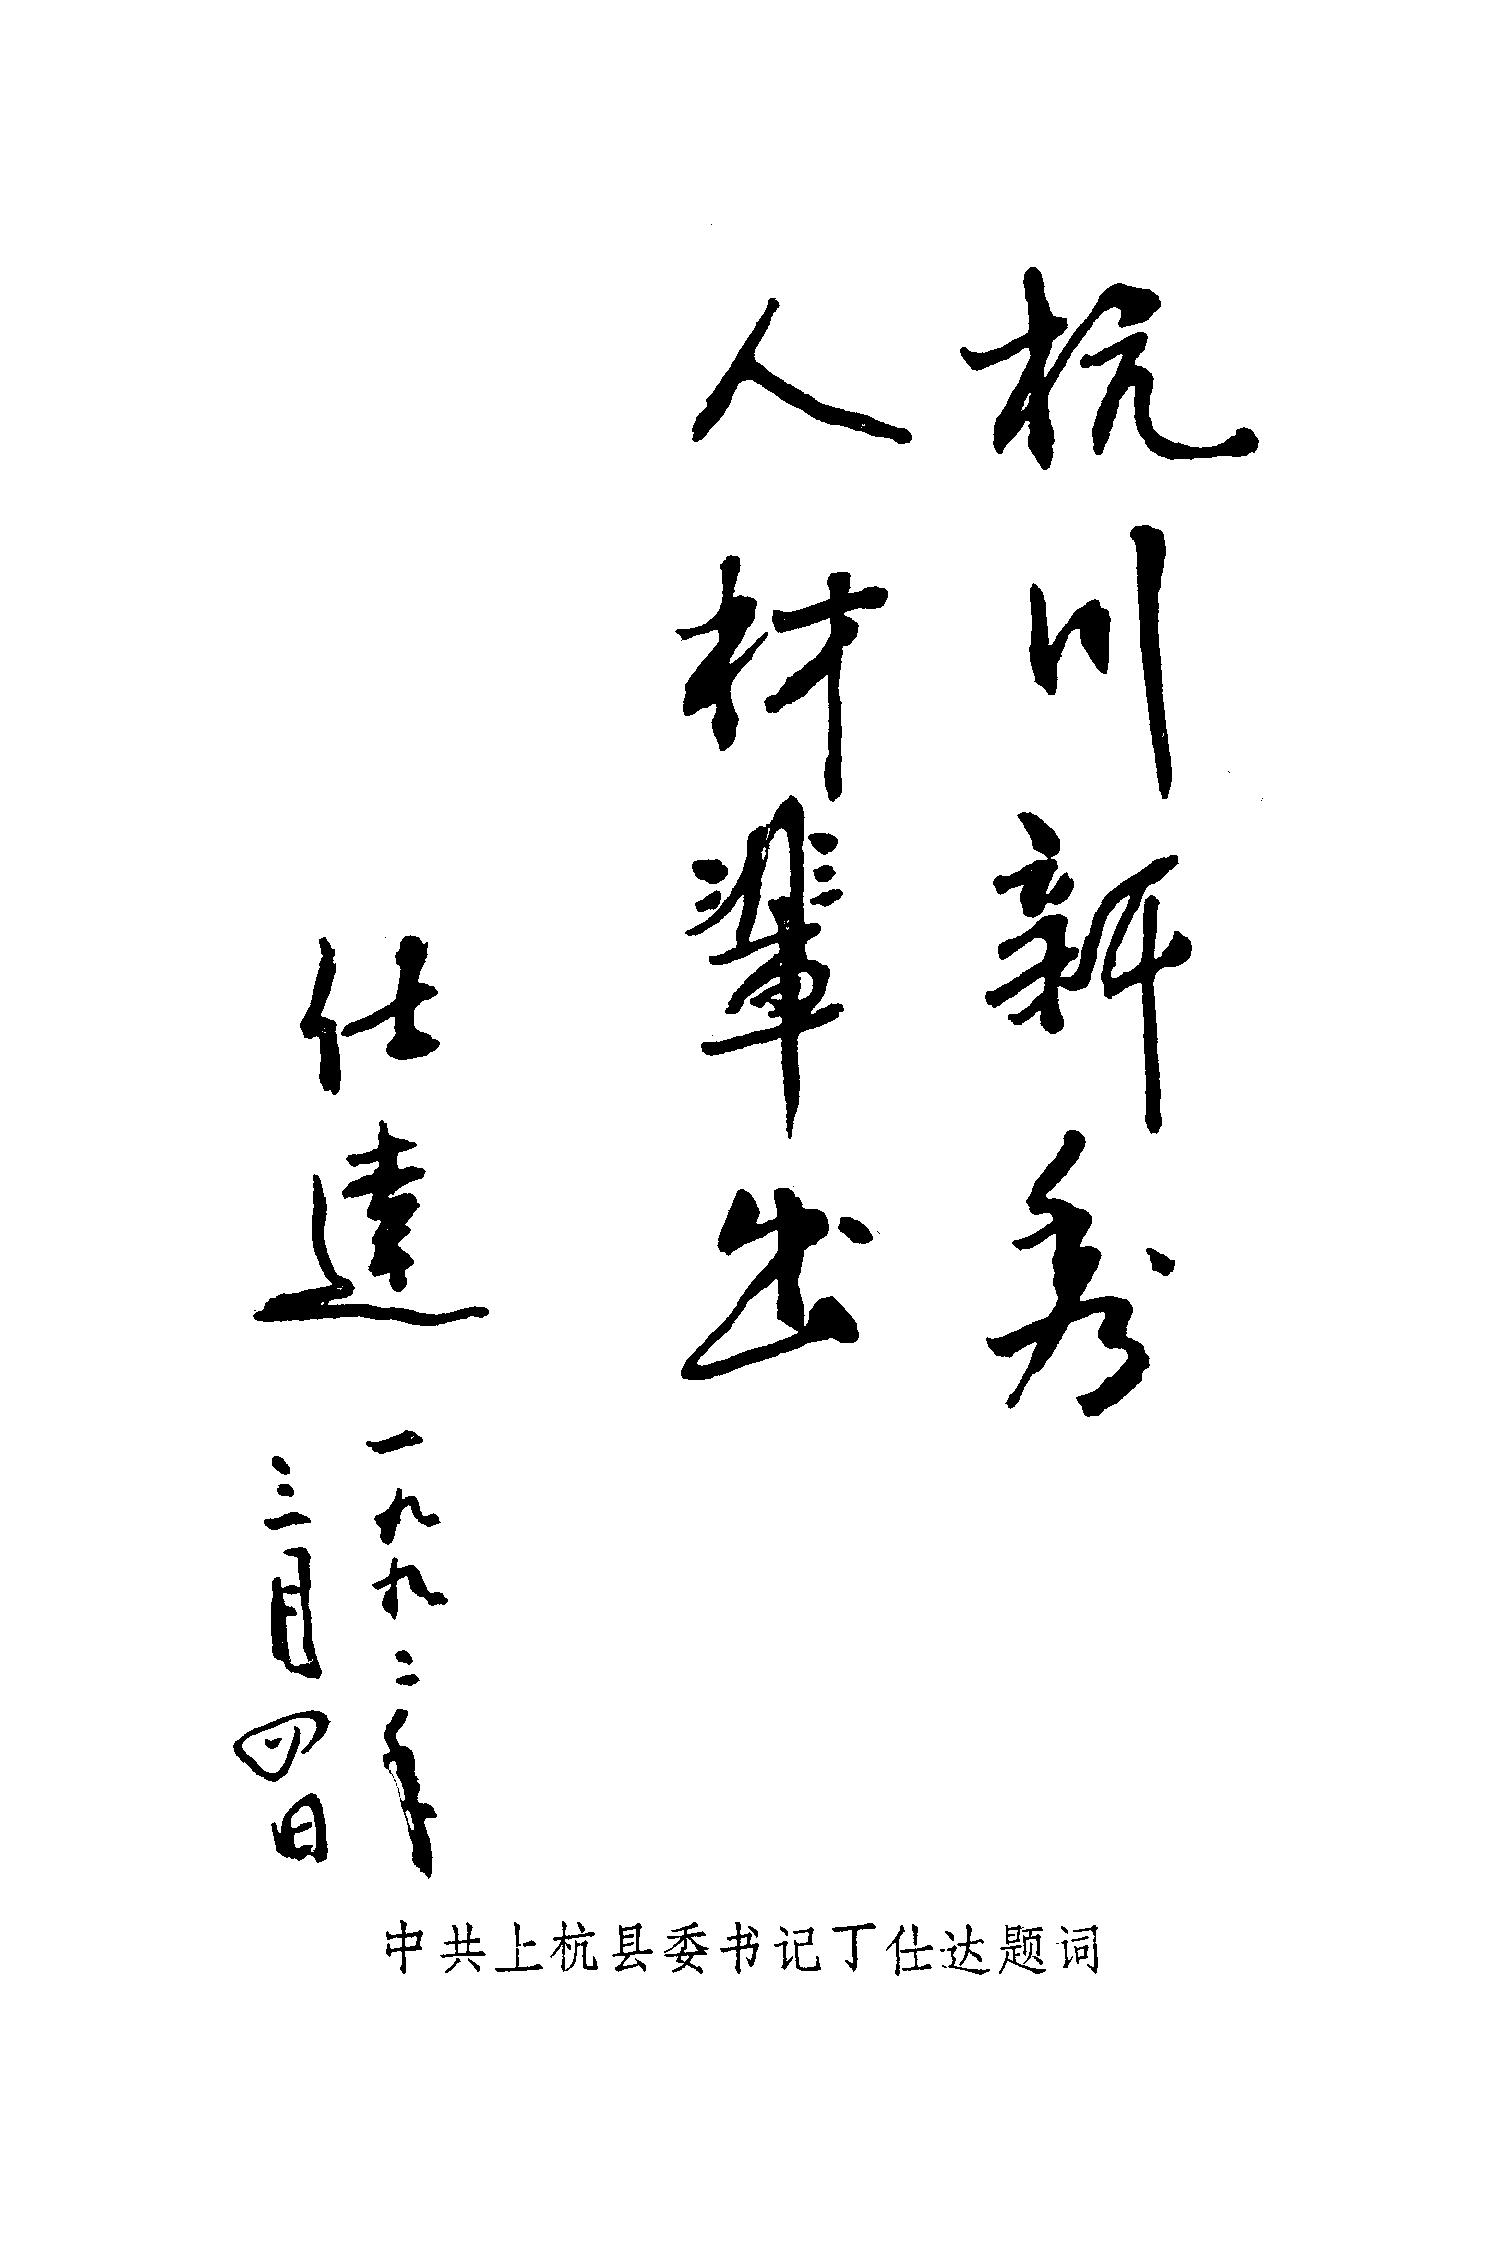 杭川新秀
人材輩出
仕達
一九九二年
三月四日
中共上杭县委书记丁仕达题词